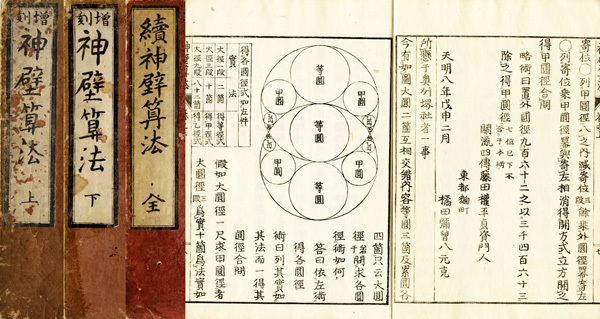 増刻
神壁算法
上
増刻
神壁算法
下
續神壁算法
全
○列寄位乘甲圓徑冪與寄左相消得開方式立方開之
得甲圓徑合問
略術曰置外圓徑九百六十二之以三千四百六十三
除之得甲圓徑
七位已下不
合于本術
關流四傳藤田權平貞資門人
東都麴町
橘田彌曾八元克
天明八年戊申二月
所懸于泉州堺社者一事
今有如圖大圓二箇互相交錯內容等圓三箇及累圓各
等圓
甲圓
甲圓
等圓
甲圓
甲圓
等圓
四箇只云大圓
徑若干求各圓
徑術如何
答曰依左術
得各圓徑
術曰列其實如
其法而一得其
圓徑合問
得各圓徑式如左件
實 法
大徑一段 二箇
大徑三段 十箇 得甲徑式
大徑九段 八十二箇 得乙徑式
假如大圓徑一尺求甲圓徑者
大圓徑三段爲實十箇爲法實如